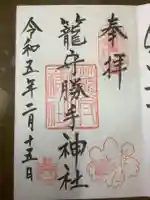 奉拝
籠守勝手神社
令和五年二月十五日